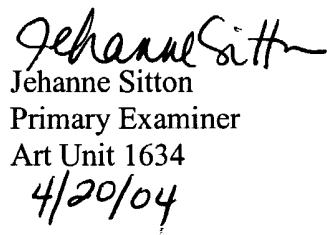 Jehanne Sitton
Jehanne Sitton
Primary Examiner
Art Unit 1634
4/20/04